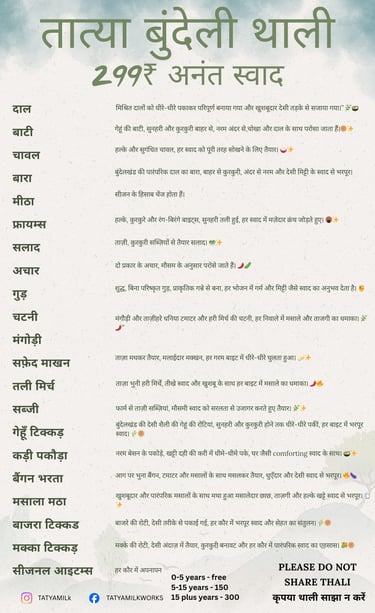 तात्या बुंदेली थाली
299₹ अनंत स्वाद
दाल मिश्रित दालों को धीरे-धीरे पकाकर परिपूर्ण बनाया गया और खुशबूदार देसी तड़के से सजाया गया।"
बाटी गेहूं की बाटी, सुनहरी और कुरकुरी बाहर से, नरम अंदर से,चोखा और दाल के साथ परोसा जाता हैं।
चावल हल्के और सुगंधित चावल, हर स्वाद को पूरी तरह सोखने के लिए तैयार।
बारा बुंदेलखंड की पारंपरिक दाल का बारा, बाहर से कुरकुरी, अंदर से नरम और देसी मिट्टी के स्वाद से भरपूर।
मीठा सीजन के हिसाब चेंज होता हैं।
फ्रायम्स हल्के, कुरकुरे और रंग-बिरंगे बाइट्स, सुनहरी तली हुई, हर स्वाद में मज़ेदार क्रंच जोड़ते हुए।
सलाद ताज़ी, कुरकुरी सब्ज़ियों से तैयार सलाद।
अचार दो प्रकार के अचार, मौसम के अनुसार परोसे जाते हैं।
गुड़ शुद्ध, बिना परिष्कृत गुड़, प्राकृतिक गन्ने से बना, हर भोजन में गर्म और मिट्टी जैसे स्वाद का अनुभव देता है।
चटनी मंगौड़ी और ताज़ीहरे धनिया टमाटर और हरी मिर्च की चटनी, हर निवाले में मसाले और ताजगी का धमाका।
"
मंगोड़ी
सफ़ेद माखन ताज़ा मथकर तैयार, मलाईदार मक्खन, हर गरम बाइट में धीरे-धीरे घुलता हुआ।
तली मिर्च ताज़ा भुनी हरी मिर्चें, तीखे स्वाद और खुशबू के साथ हर बाइट में मसाले का धमाका।
सब्जी फार्म से ताज़ी सब्ज़ियां, मौसमी स्वाद को सरलता से उजागर करते हुए तैयार।
गेहूँ टिक्कड़ बुंदेलखंड की देसी शैली की गेहूं की रोटियां, सुनहरी और कुरकुरी होने तक धीरे-धीरे पकीं, हर बाइट में भरपूर
स्वाद।
कड़ी पकौड़ा नरम बेसन के पकोड़े, खट्टी दही की करी में धीमे-धीमे पके, घर जैसी comforting स्वाद के साथ।
बैंगन भरता आग पर भुना बैंगन, टमाटर और मसालों के साथ मसलकर तैयार, धुएँदार और देसी स्वाद से भरपूर।
मसाला मठा खुशबूदार और पारंपरिक मसालों के साथ मथा हुआ मसालेदार छाछ, ताज़गी और हल्के खट्टे स्वाद से भरपूर।
बाजरा टिक्कड बाजरे की रोटी, देसी तरीके से पकाई गई, हर कौर में भरपूर स्वाद और सेहत का संतुलन।
मक्का टिक्कड़ मक्के की रोटी, देसी अंदाज़ में तैयार, कुरकुरी बनावट और हर कौर में पारंपरिक स्वाद का एहसास।
सीजनल आइटम्स हर कौर में अपनापन
0-5 years - free
5-15 years - 150
15 plus years - 300
PLEASE DO NOT
SHARE THALI
कृपया थाली साझा न करें
TATYAMILk
TATYAMILKWORKS